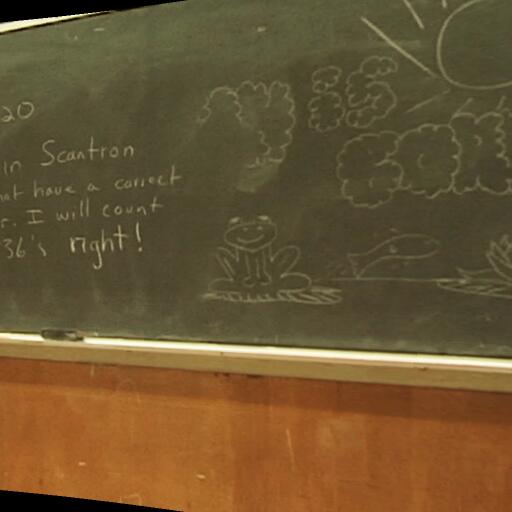 20
in Scantron
hat have a correct
r. I will count
36's right!